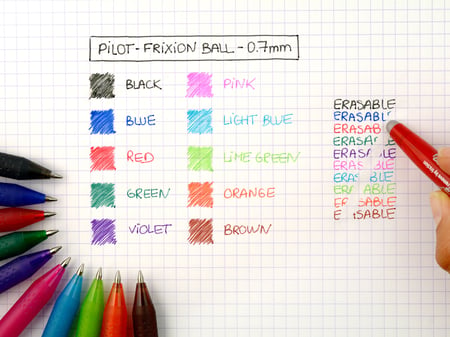 PILOT - FRIXION BALL - 0.7mm
BLACK
BLUE
RED
GREEN
VIOLET
PINK
LIGHT BLUE
LIME GREEN
ORANGE
BROWN
ERASABLE
ERASABL
ERASAB
ERASABLE
ERASABLE
ERAS BLE
ERA ABLE
ER ABLE
ER SABLE
E SABLE